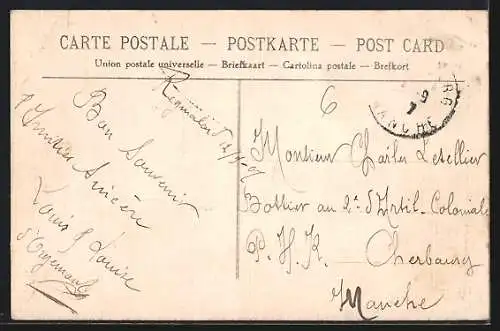 CARTE POSTALE — POSTKARTE — POST CARD
Union postale universelle — Briefkaart — Cartolina postale — Brefkort
Bon Souvenir
Amitiés Sincère
Louis & Louise
6
Monsieur Charles Letellier
Bottier au 2e d'Artil. Coloniale
P. H. R. Cherbourg
Manche
RG
MANCHE